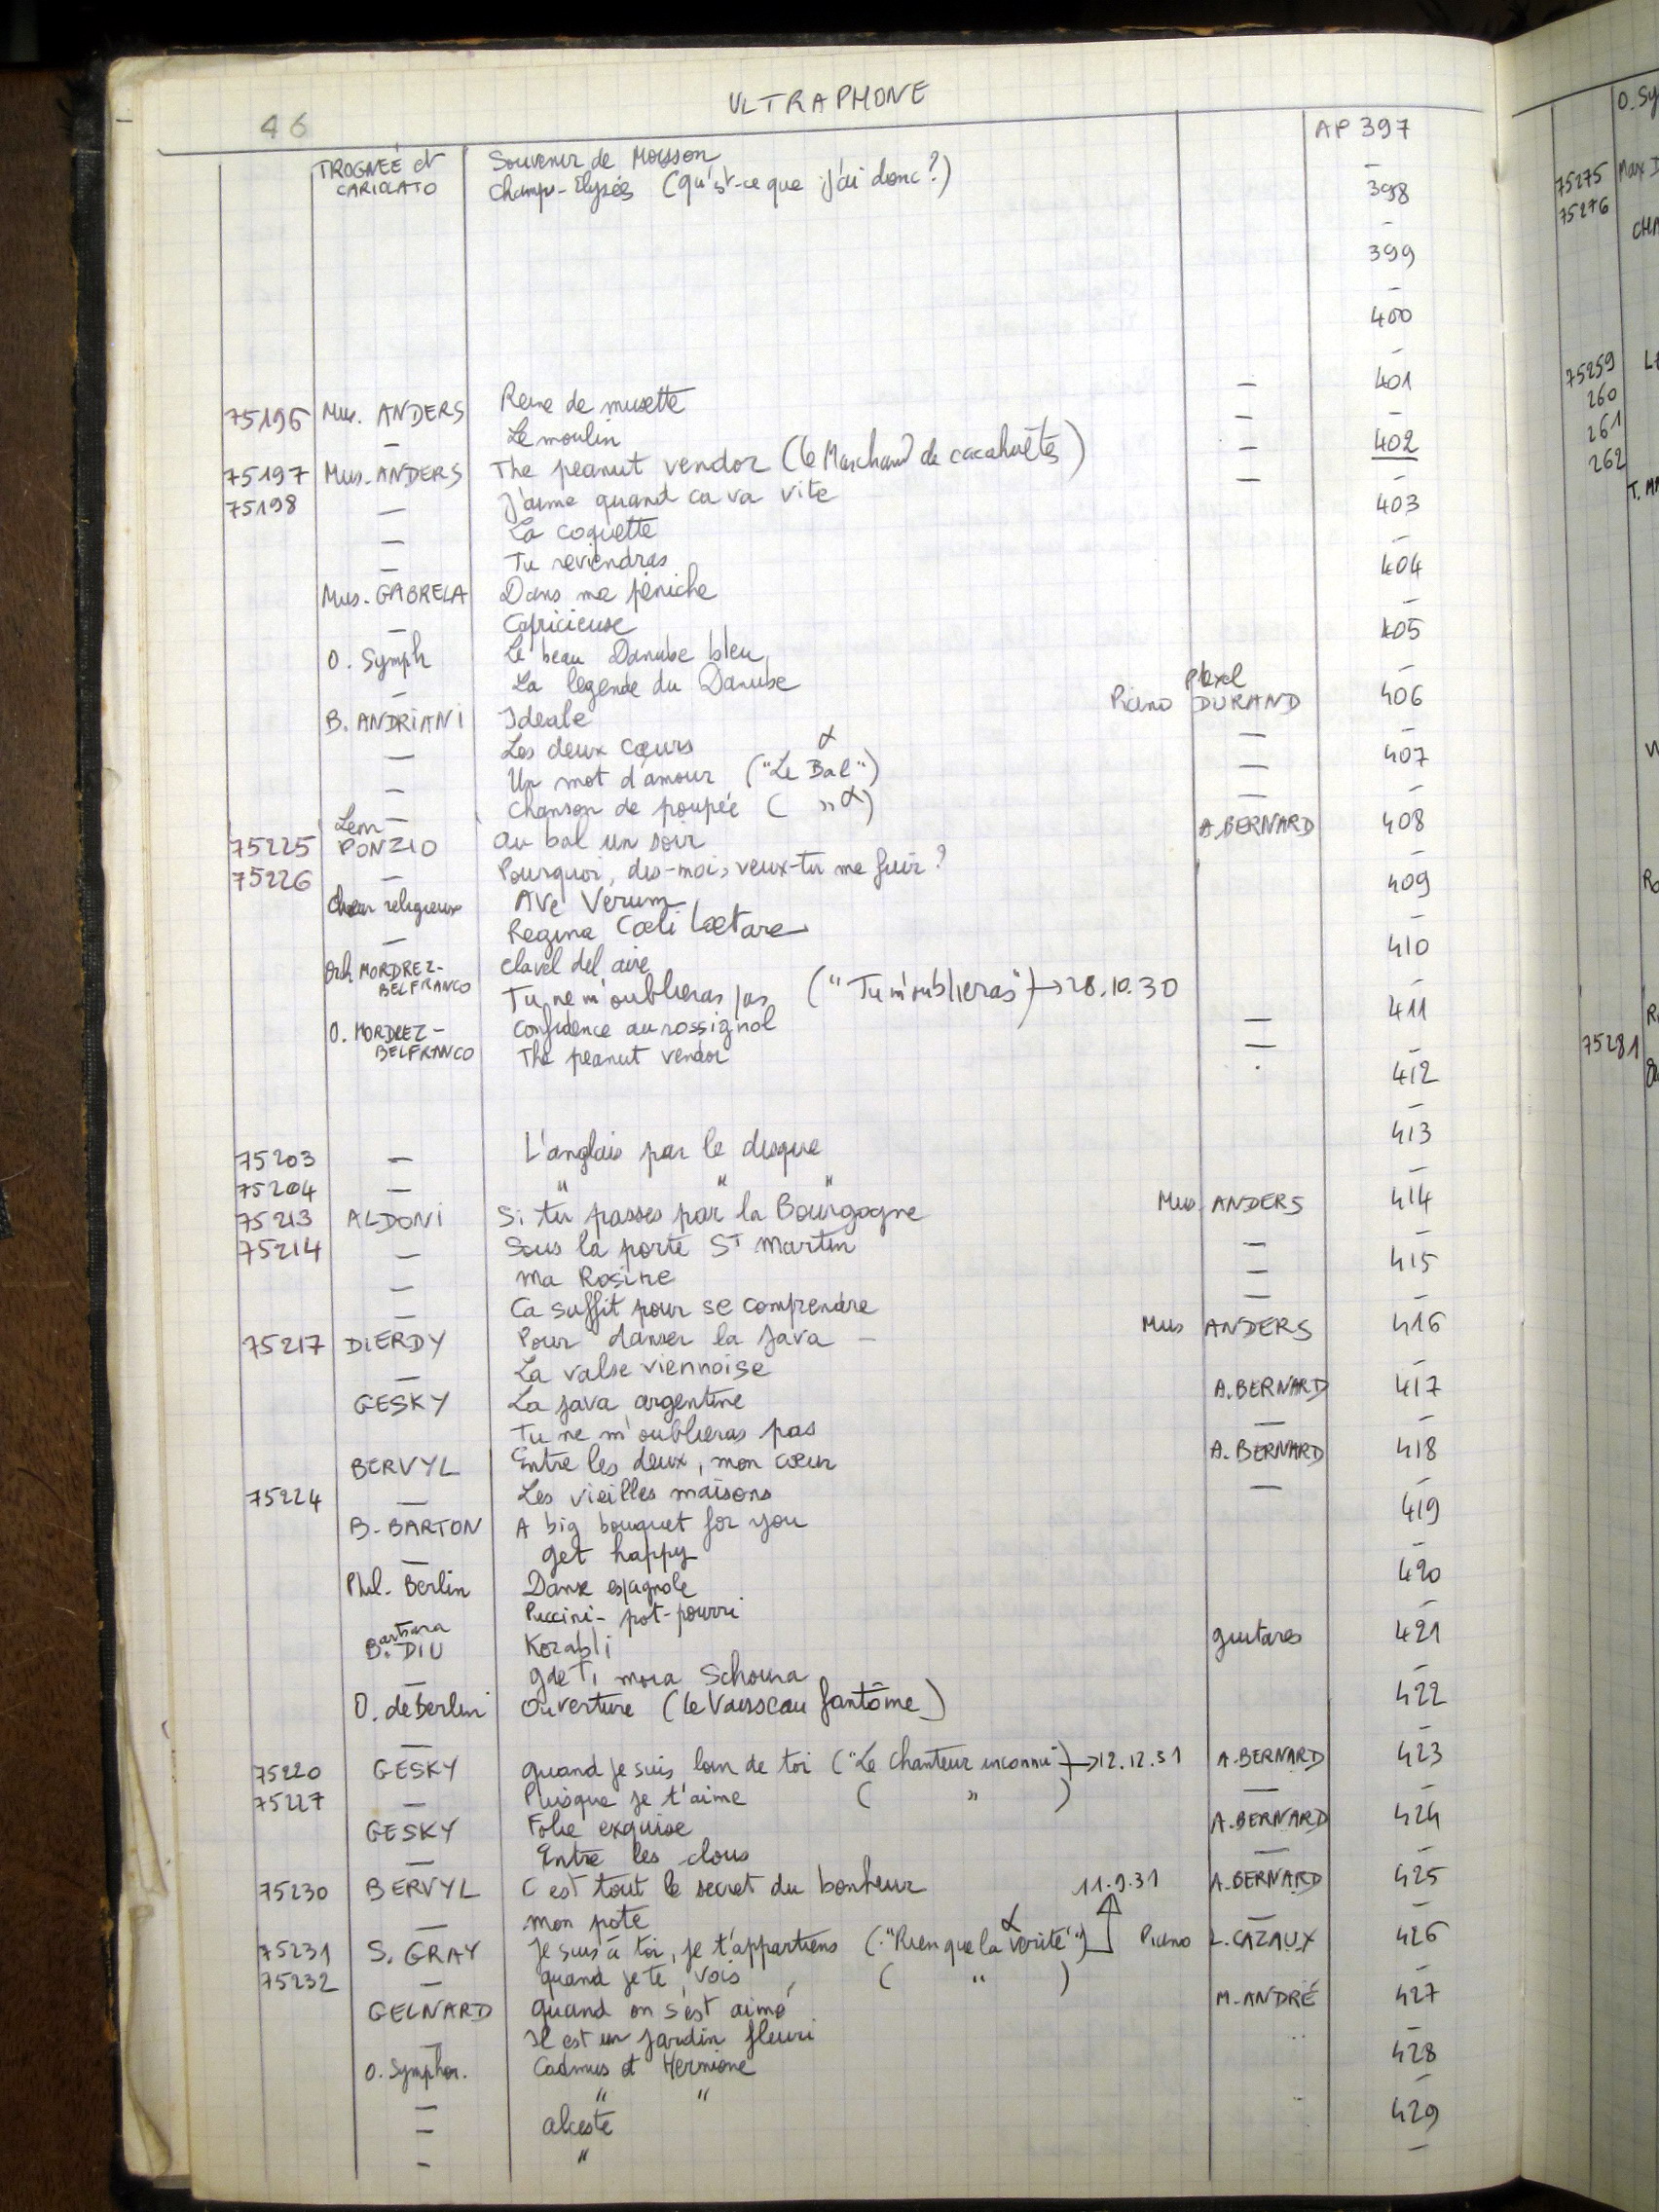 46 ULTRAPHONE
TROGNEÉ et CARIOLATO Souvenir de Moisson AP 397
Champs-Elysées (Qu'est-ce que j'ai donc?) -
398
-
399
-
400
-
75196 Mus. ANDERS Reine de musette - 401
- Le moulin - -
75197 Mus. ANDERS The peanut vendor (Le Marchand de cacahuètes) - 402
75198 - J'aime quand ca va vite - -
- La coquette 403
- Tu reviendras -
Mus. GABRELA Dans ma péniche 404
- Capricieuse -
O. Symph Le beau Danube bleu 405
- La légende du Danube -
B. ANDRIANI Ideale Piano DURAND 406
- Les deux cœurs - -
- Un mot d'amour ("Le Bal" α) - 407
- Chanson de poupée ( " α) - -
75225 PONZIO Au bal un soir A. BERNARD 408
75226 - Pourquoi, dis-moi, veux-tu me fuir? -
Chœur religieux Ave Verum 409
- Regina Cœli Lætare -
Orch. MORDREZ-BELFRANCO Clavel del aire 410
Tu ne m'oublieras pas ("Tu m'oublieras") → 28.10.30 -
O. MORDREZ-BELFRANCO Confidence au rossignol - 411
The peanut vendor - -
412
-
413
75203 - L'anglais par le disque -
75204 - " " "
75213 ALDONI Si tu passes par la Bourgogne Mus. ANDERS 414
75214 - Sous la porte St Martin - -
- Ma Rosine - 415
- Ca suffit pour se comprendre - -
75217 DIERDY Pour danser la java - Mus ANDERS 416
- La valse viennoise -
GESKY La java argentine A. BERNARD 417
Tu ne m'oublieras pas - -
BERVYL Entre les deux, mon cœur A. BERNARD 418
75224 - Les vieilles maisons - -
B. BARTON A big bouquet for you 419
- Get happy -
Phil. Berlin Danse espagnole 420
Puccini - pot-pourri -
Barbara DIU Korabli guitares 421
- Gde Ti moia Schoura -
O. de Berlin Ouverture (Le Vaisseau fantôme) 422
- -
75220 GESKY Quand je suis loin de toi ("Le Chanteur inconnu") → 12.12.31 A. BERNARD 423
75227 - Puisque je t'aime ( " ) - -
GESKY Folie exquise A. BERNARD 424
- Entre les clous - -
75230 BERVYL C'est tout le secret du bonheur 11.9.31 A. BERNARD 425
- Mon pote - -
75231 S. GRAY Je suis à toi, je t'appartiens ("Rien que la vérité" α) Piano L. CAZAUX 426
75232 - Quand je te vois ( " ) -
GELNARD Quand on s'est aimé M. ANDRÉ 427
- Il est un jardin fleuri " -
O. Symphon. Cadmus et Hermione 428
- " " -
- Alceste 429
- " -
O. Sy
75275 Max D
75276
75259
260
261
262
75281